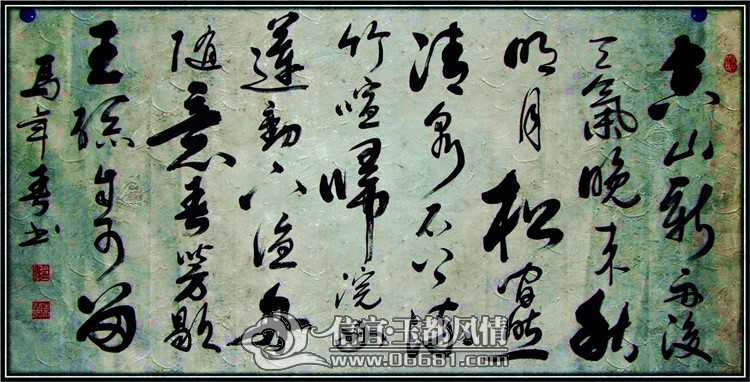 空山新雨後
天氣晚来秋
明月松間照
清泉石上流
竹喧歸浣女
蓮動下漁舟
隨意春芳歇
王孫自可留
馬年春书
信宜·玉都风情
www.06681.com